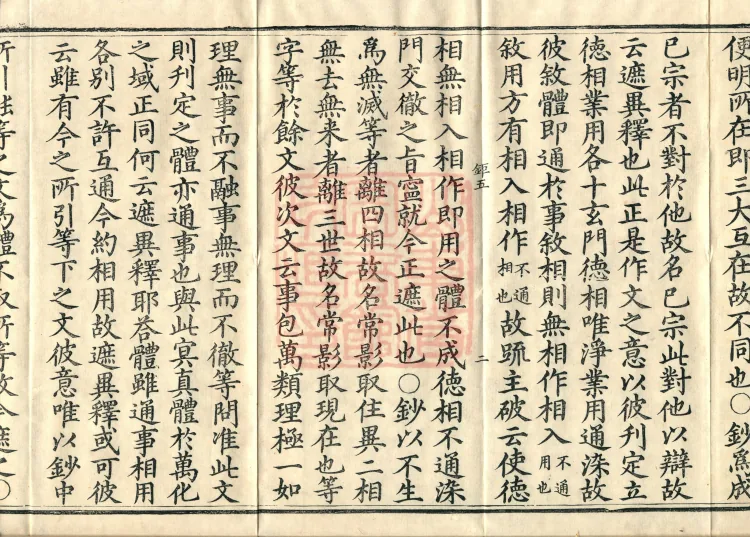 便明所在即三大互在故不同也〇鈔爲成
已宗者不對於他故名已宗此對他以辯故
云遮異釋也此正是作文之意以彼刊定立
德相業用各十玄門德相唯淨業用通染故
彼敘體即通於事敘相則無相作相入不通用也
敘用方有相入相作不通相也故䟽主破云使德
鉅五
二
相無相入相作即用之體不成德相不通染
門交徹之旨寧就今正遮此也〇鈔以不生
爲無滅等者離四相故名常影取住異二相
無去無来者離三世故名常影取現在也等
字等於餘文彼次文云事包萬類理極一如
理無事而不融事無理而不徹等問准此文
則刊定之體亦通事也與此冥真體於萬化
之域正同何云遮異釋耶荅體雖通事相用
各別不許互通今約相用故遮異釋或可彼
云雖有今之所引等下之文彼意唯以鈔中
所引融等之文爲體不取所等故今遮之〇